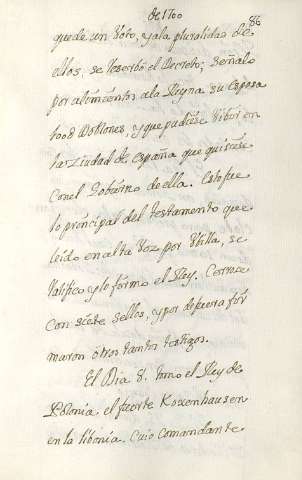 de 1700
86
quede un Voto, y a la pluralidad de
ellos, se reserbó el Decreto; señaló
por alimentos a la Reyna su esposa
Doblones, y que pudiese vibir en
la Ziudad de españa que quisiese
Con el Gobierno de ella. Esto fue
lo principal del testamento que
leido en alta voz por Vbilla, se
ratifico y lo firmo el Rey. Cerrose
Con siete Sellos, y por de fuera fir
maron otros tantos testigos.
El Dia 8. tomo el Rey de
Polonia el fuerte Koxenhausen
en la libonia. Cuio Comandante